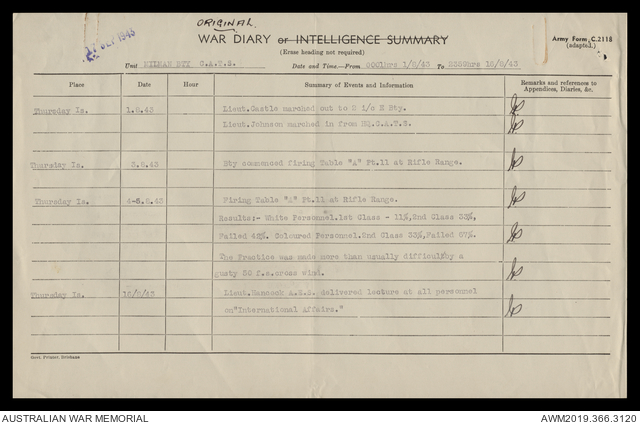 ORIGINAL.
SEP 1943
WAR DIARY or INTELLIGENCE SUMMARY
(Erase heading not required)
Army Form C.2118
(adapted.)
Unit MILMAN BTY C.A.T.S. Date and Time—From 0001hrs 1/8/43 To 2359hrs 15/8/43
Place Date Hour Summary of Events and Information Remarks and references to Appendices, Diaries, &c.
Thursday Is. 1.8.43 Lieut.Castle marched out to 2 i/c Bty.
Lieut.Johnson marched in from HQ.C.A.T.S.
Thursday Is. 3.8.43 Bty commenced firing Table "A" Pt.11 at Rifle Range.
Thursday Is. 4-5.8.43 Firing Table "A" Pt.11 at Rifle Range.
Results:- White Personnel.1st Class - 11%,2nd Class
Failed 42%. Coloured Personnel.2nd Class 33%,Failed 67%.
The Practice was made more than usually difficult by a
gusty 30 f.s.cross wind.
Thursday Is. Lieut.Hancock A.E.S. delivered lecture at all personnel
on"International Affairs."
Govt. Printer, Brisbane
AUSTRALIAN WAR MEMORIAL
AWM2019.366.3120